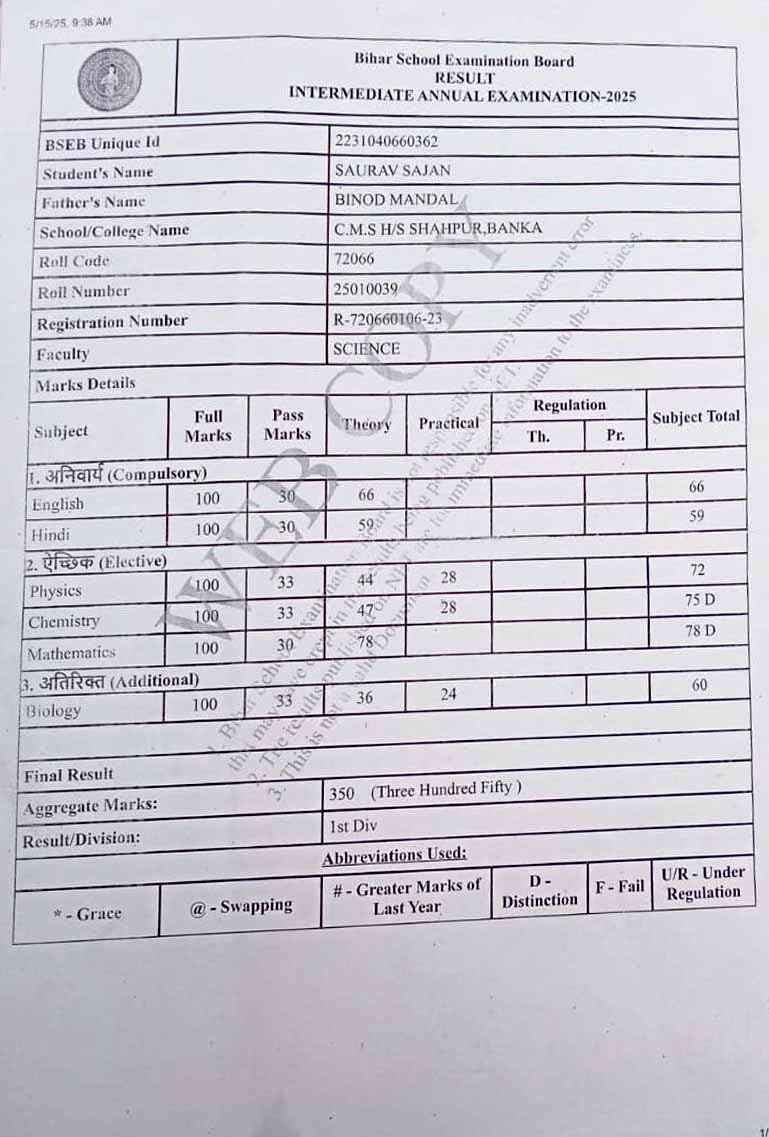 5/15/25, 9:38 AM
Bihar School Examination Board
RESULT
INTERMEDIATE ANNUAL EXAMINATION-2025
BSEB Unique Id 2231040660362
Student's Name SAURAV SAJAN
Father's Name BINOD MANDAL
School/College Name C.M.S H/S SHAHPUR,BANKA
Roll Code 72066
Roll Number 25010039
Registration Number R-720660106-23
Faculty SCIENCE
Marks Details
Subject Full Marks Pass Marks Theory Practical Regulation Th. Pr. Subject Total
1. अनिवार्य (Compulsory)
English 100 30 66 66
Hindi 100 30 59 59
2. ऐच्छिक (Elective)
Physics 100 33 44 28 72
Chemistry 100 33 47 28 75 D
Mathematics 100 30 78 78 D
3. अतिरिक्त (Additional)
Biology 100 33 36 24 60
Final Result
Aggregate Marks: 350 (Three Hundred Fifty )
Result/Division: 1st Div
Abbreviations Used:
* - Grace @ - Swapping # - Greater Marks of Last Year D - Distinction F - Fail U/R - Under Regulation
WEB COPY
1. Bihar School Examination Board is not responsible for any inadvertent error
that may have crept in the results being published on NET.
2. The results published on NET are for immediate information to the examinees.
3. This is not a valid Document
1/